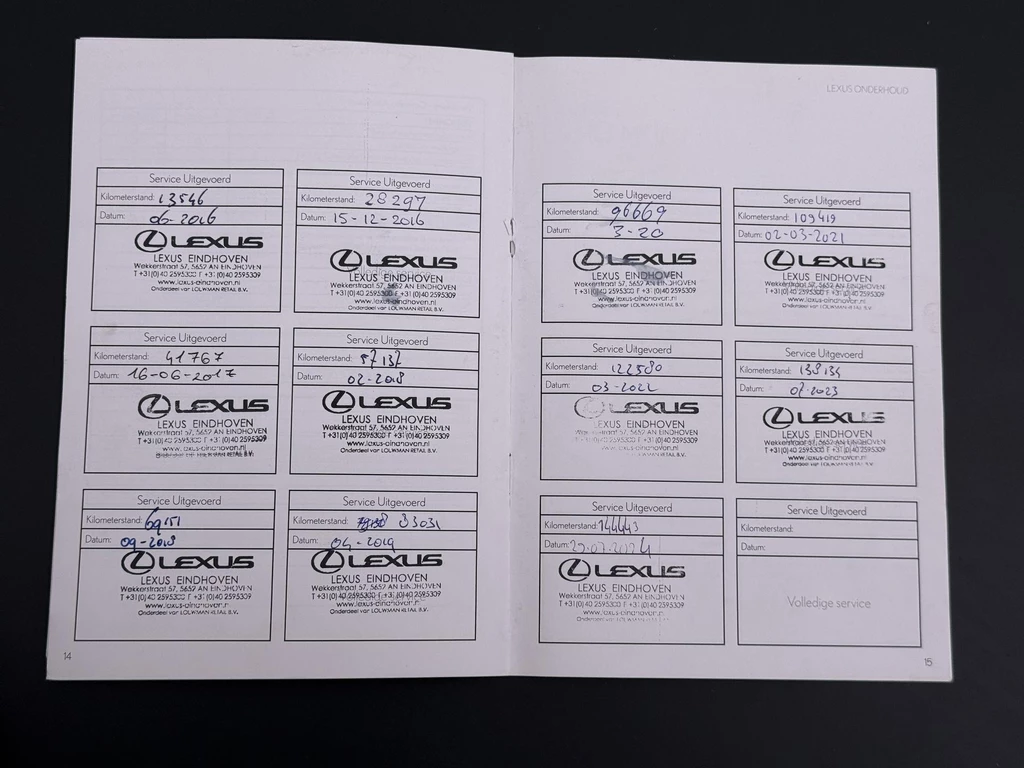 LEXUS ONDERHOUD
Service Uitgevoerd
Kilometerstand: 13546
Datum: 06-2016
LEXUS
LEXUS EINDHOVEN
Wekkerstraat 57, 5652 AN EINDHOVEN
T +31(0)40 2595300 F +31(0)40 2595309
www.lexus-eindhoven.nl
Onderdeel van LOUWMAN RETAIL B.V.
Service Uitgevoerd
Kilometerstand: 28297
Datum: 15-12-2016
LEXUS
Volledige
LEXUS EINDHOVEN
Wekkerstraat 57, 5652 AN EINDHOVEN
T +31(0)40 2595300 F +31(0)40 2595309
www.lexus-eindhoven.nl
Onderdeel van LOUWMAN RETAIL B.V.
Service Uitgevoerd
Kilometerstand: 41767
Datum: 16-06-2017
LEXUS
LEXUS EINDHOVEN
Wekkerstraat 57, 5652 AN EINDHOVEN
T +31(0)40 2595300 F +31(0)40 2595309
www.lexus-eindhoven.nl
Onderdeel van LOUWMAN RETAIL B.V.
Service Uitgevoerd
Kilometerstand: 57137
Datum: 02-2018
LEXUS
LEXUS EINDHOVEN
Wekkerstraat 57, 5652 AN EINDHOVEN
T +31(0)40 2595300 F +31(0)40 2595309
www.lexus-eindhoven.nl
Onderdeel van LOUWMAN RETAIL B.V.
Service Uitgevoerd
Kilometerstand: 69151
Datum: 09-2018
LEXUS
LEXUS EINDHOVEN
Wekkerstraat 57, 5652 AN EINDHOVEN
T +31(0)40 2595300 F +31(0)40 2595309
www.lexus-eindhoven.nl
Onderdeel van LOUWMAN RETAIL B.V.
Service Uitgevoerd
Kilometerstand: 83031
Datum: 04-2019
LEXUS
LEXUS EINDHOVEN
Wekkerstraat 57, 5652 AN EINDHOVEN
T +31(0)40 2595300 F +31(0)40 2595309
www.lexus-eindhoven.nl
Onderdeel van LOUWMAN RETAIL B.V.
14
Service Uitgevoerd
Kilometerstand: 96669
Datum: 3-20
LEXUS
LEXUS EINDHOVEN
Wekkerstraat 57, 5652 AN EINDHOVEN
T +31(0)40 2595300 F +31(0)40 2595309
www.lexus-eindhoven.nl
Onderdeel van LOUWMAN RETAIL B.V.
Service Uitgevoerd
Kilometerstand: 109419
Datum: 02-03-2021
LEXUS
LEXUS EINDHOVEN
Wekkerstraat 57, 5652 AN EINDHOVEN
T +31(0)40 2595300 F +31(0)40 2595309
www.lexus-eindhoven.nl
Onderdeel van LOUWMAN RETAIL B.V.
Service Uitgevoerd
Kilometerstand: 122580
Datum: 03-2022
LEXUS
LEXUS EINDHOVEN
Wekkerstraat 57, 5652 AN EINDHOVEN
T +31(0)40 2595300 F +31(0)40 2595309
www.lexus-eindhoven.nl
Onderdeel van LOUWMAN RETAIL B.V.
Service Uitgevoerd
Kilometerstand: 138134
Datum: 07-2023
LEXUS
LEXUS EINDHOVEN
Wekkerstraat 57, 5652 AN EINDHOVEN
T +31(0)40 2595300 F +31(0)40 2595309
www.lexus-eindhoven.nl
Onderdeel van LOUWMAN RETAIL B.V.
Service Uitgevoerd
Kilometerstand: 144443
Datum: 29-07-2024
LEXUS
LEXUS EINDHOVEN
Wekkerstraat 57, 5652 AN EINDHOVEN
T +31(0)40 2595300 F +31(0)40 2595309
www.lexus-eindhoven.nl
Onderdeel van LOUWMAN RETAIL B.V.
Service Uitgevoerd
Kilometerstand:
Datum:
Volledige service
15